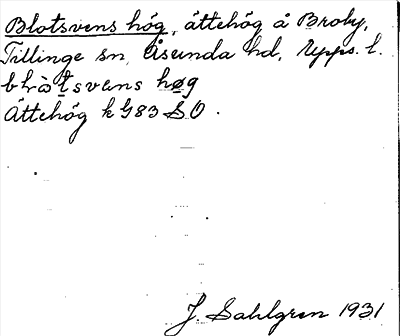 Blotsvens hög, ättehög å Broby,
Tillinge sn, Åsunda hd, Upps. l.
blòtsvens høg
Ättehög k G83 SO.
J. Sahlgren 1931